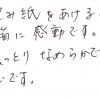 み紙をあける
箱に感動です。
っとりなめらかで
です。